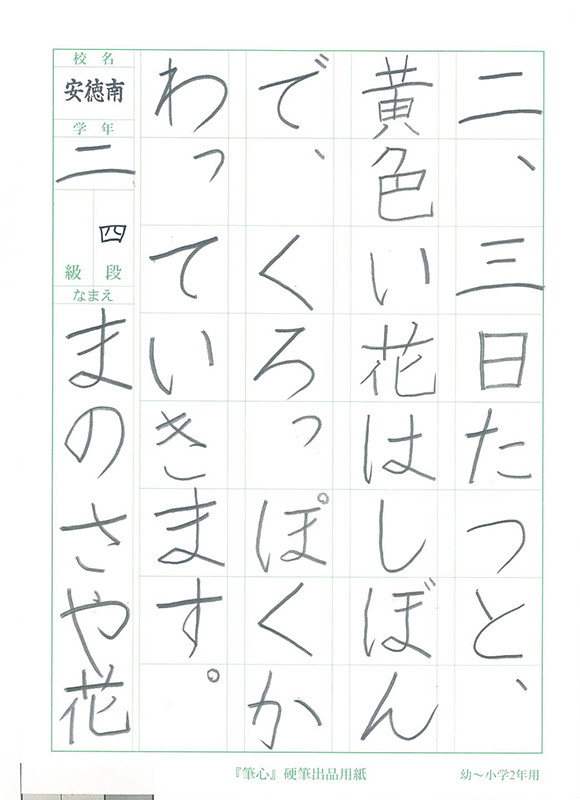 二、三日たつと、
黄色い花はしぼん
で、くろっぽくか
わっていきます。
校名
安徳南
学年
二
四
級 段
なまえ
まのさや花
『筆心』硬筆出品用紙
幼〜小学2年用